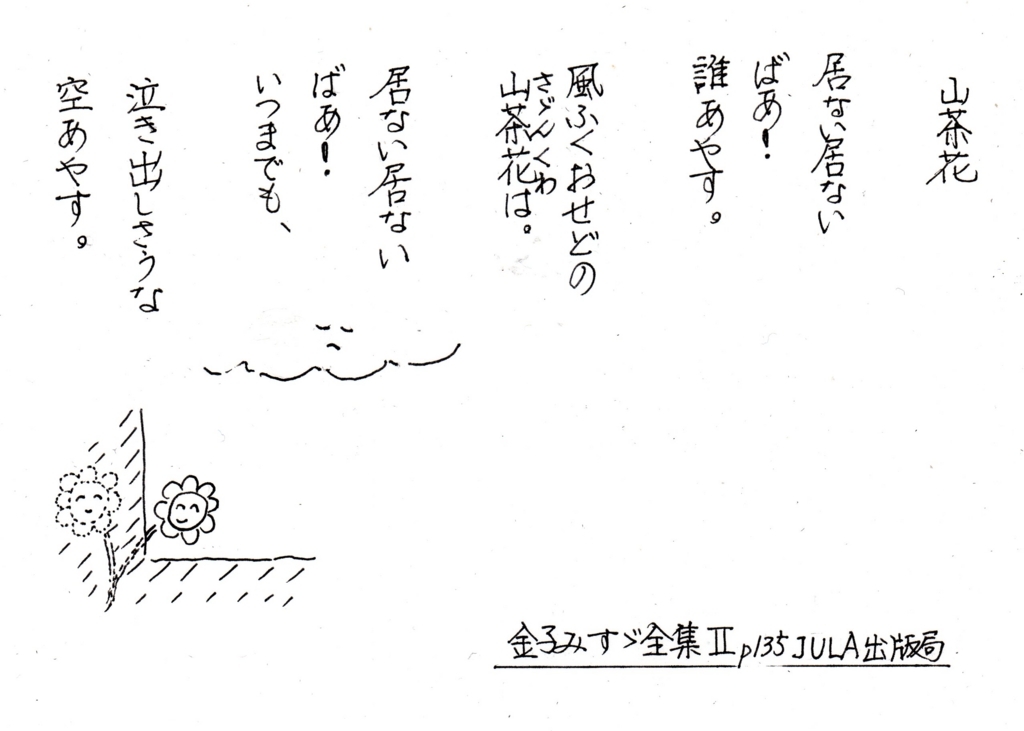 山茶花
居ない居ない
ばあ！
誰あやす。
風ふくおせどの
さざんくわ
山茶花は。
居ない居ない
ばあ！
いつまでも、
泣き出しさうな
空あやす。
金子みすゞ全集Ⅱp135JULA出版局